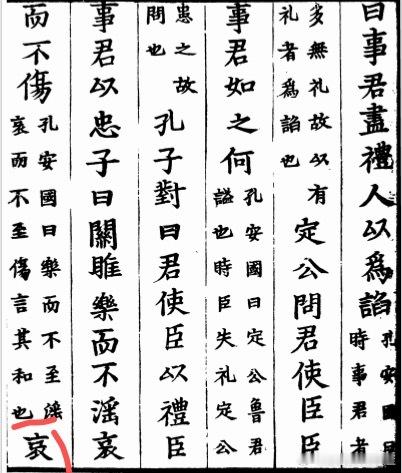 曰事君盡禮人以爲諂孔安國曰時事君者
多無礼故以有礼者爲諂也定公問君使臣臣
事君如之何孔安國曰定公魯君謚也時臣失礼定公
患之故問也孔子對曰君使臣以禮臣
事君以忠子曰關雎樂而不滛哀
而不傷孔安國曰樂而不至滛哀而不至傷言其和也哀